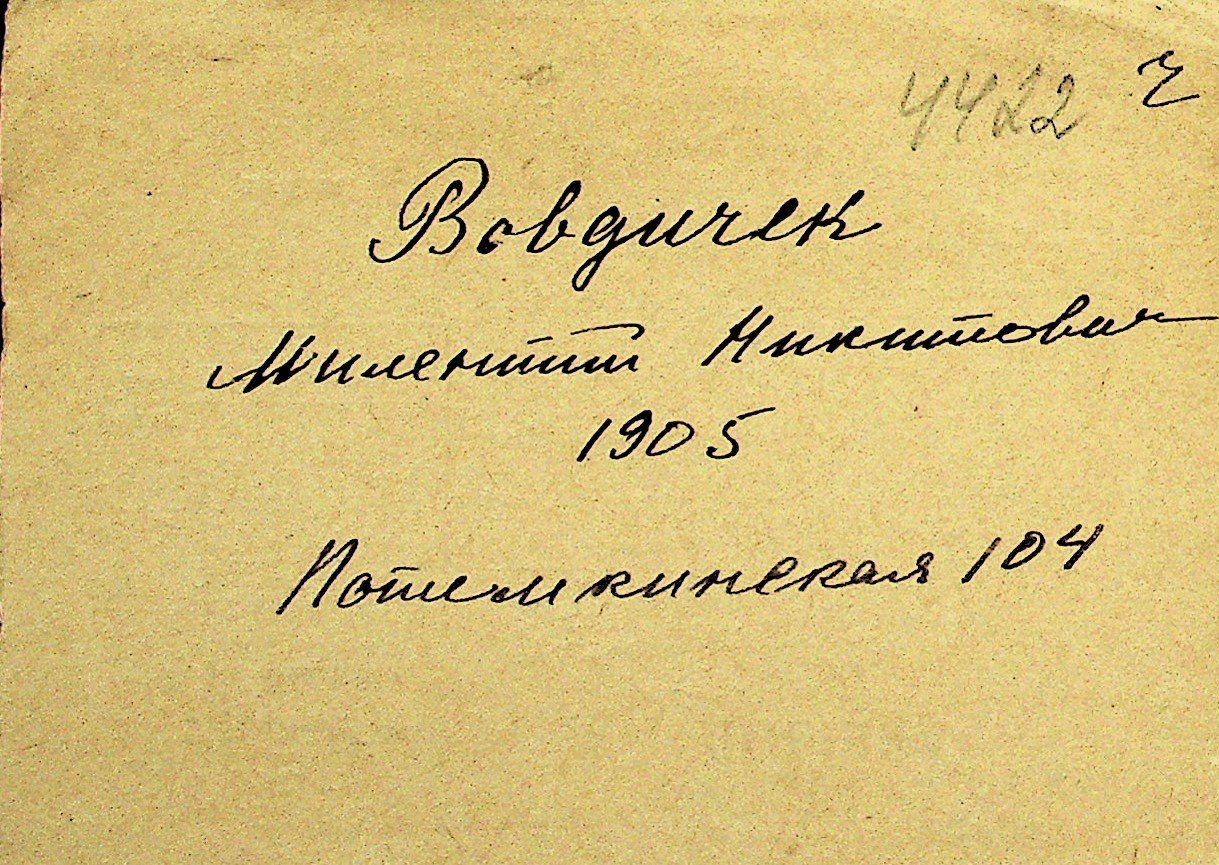 4422 ч
Вовдичек
Милентий Никитович
1905
Потемкинская 104